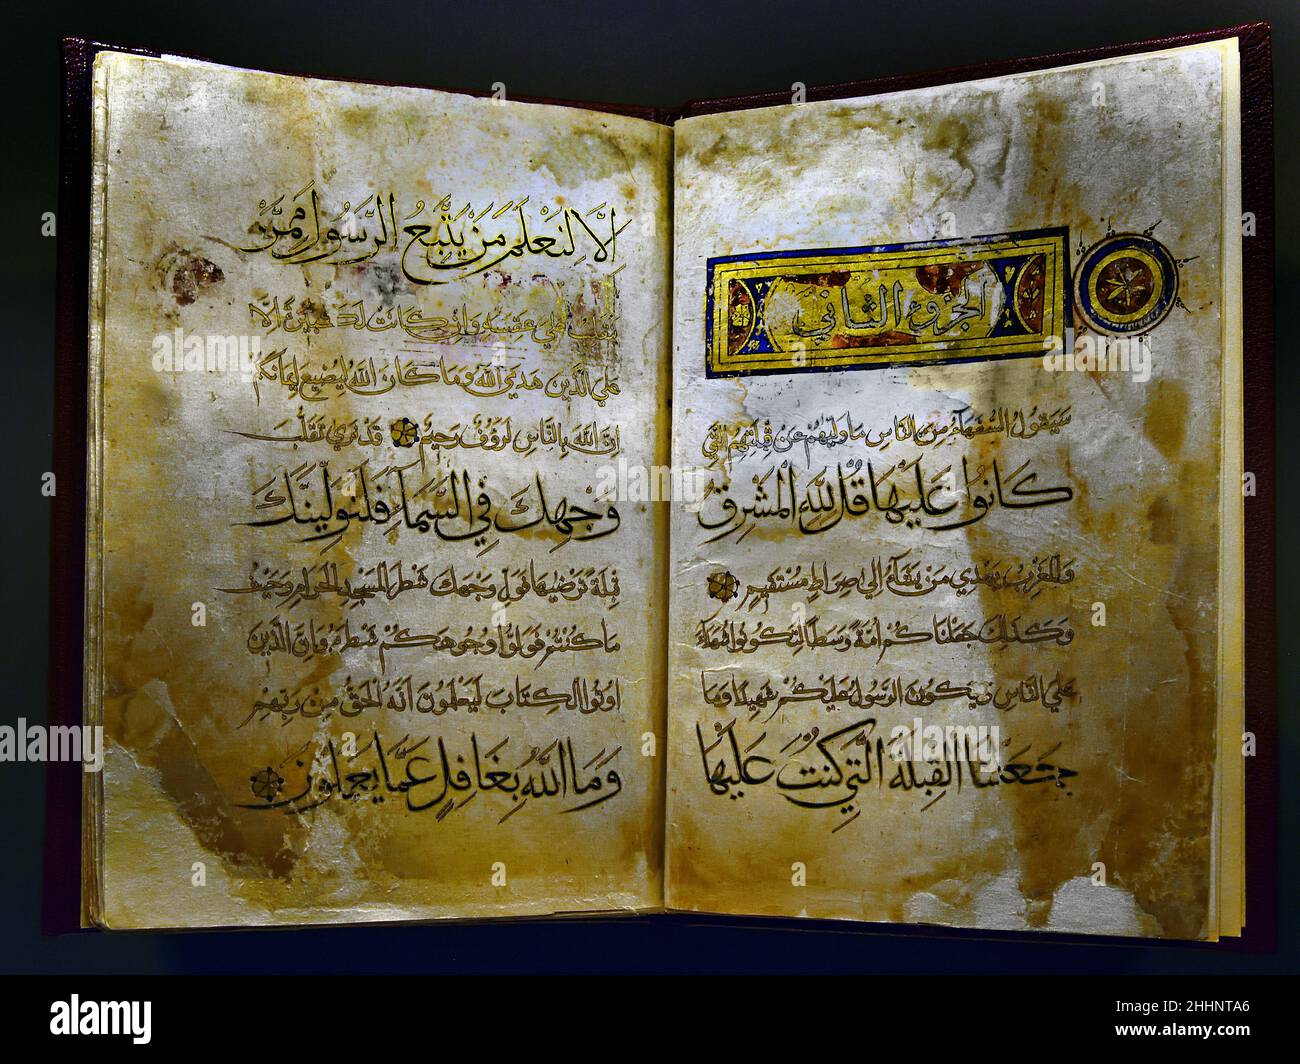 الجزء الثاني
سيقول السفهاء من الناس ما وليهم عن قبلتهم التي
كانوا عليها قل لله المشرق
والمغرب يهدي من يشاء إلى صراط مستقيم
وكذلك جعلناكم أمة وسطا لتكونوا شهداء
على الناس ويكون الرسول عليكم شهيدا وما
جعلنا القبلة التي كنت عليها
إلَّا لِنَعْلَمَ مَنْ يَتَّبِعُ الرَّسُولَ مِمَّنْ
ينقلب على عقبيه وإن كانت لكبيرة إلا
على الذين هدى الله وما كان الله ليضيع إيمانكم
إن الله بالناس لرؤف رحيم قد نرى تقلب
وَجْهِكَ فِي السَّمَاءِ فَلَنُوَلِّيَنَّكَ
قبلة ترضيها فول وجهك شطر المسجد الحرام وحيث
ما كنتم فولوا وجوهكم شطره وإن الذين
اوتوا الكتاب ليعلمون أنه الحق من ربهم
وَمَا اللَّهُ بِغَافِلٍ عَمَّا يَعْمَلُونَ
alamy
Image ID: 2HHNTA6
www.alamy.com